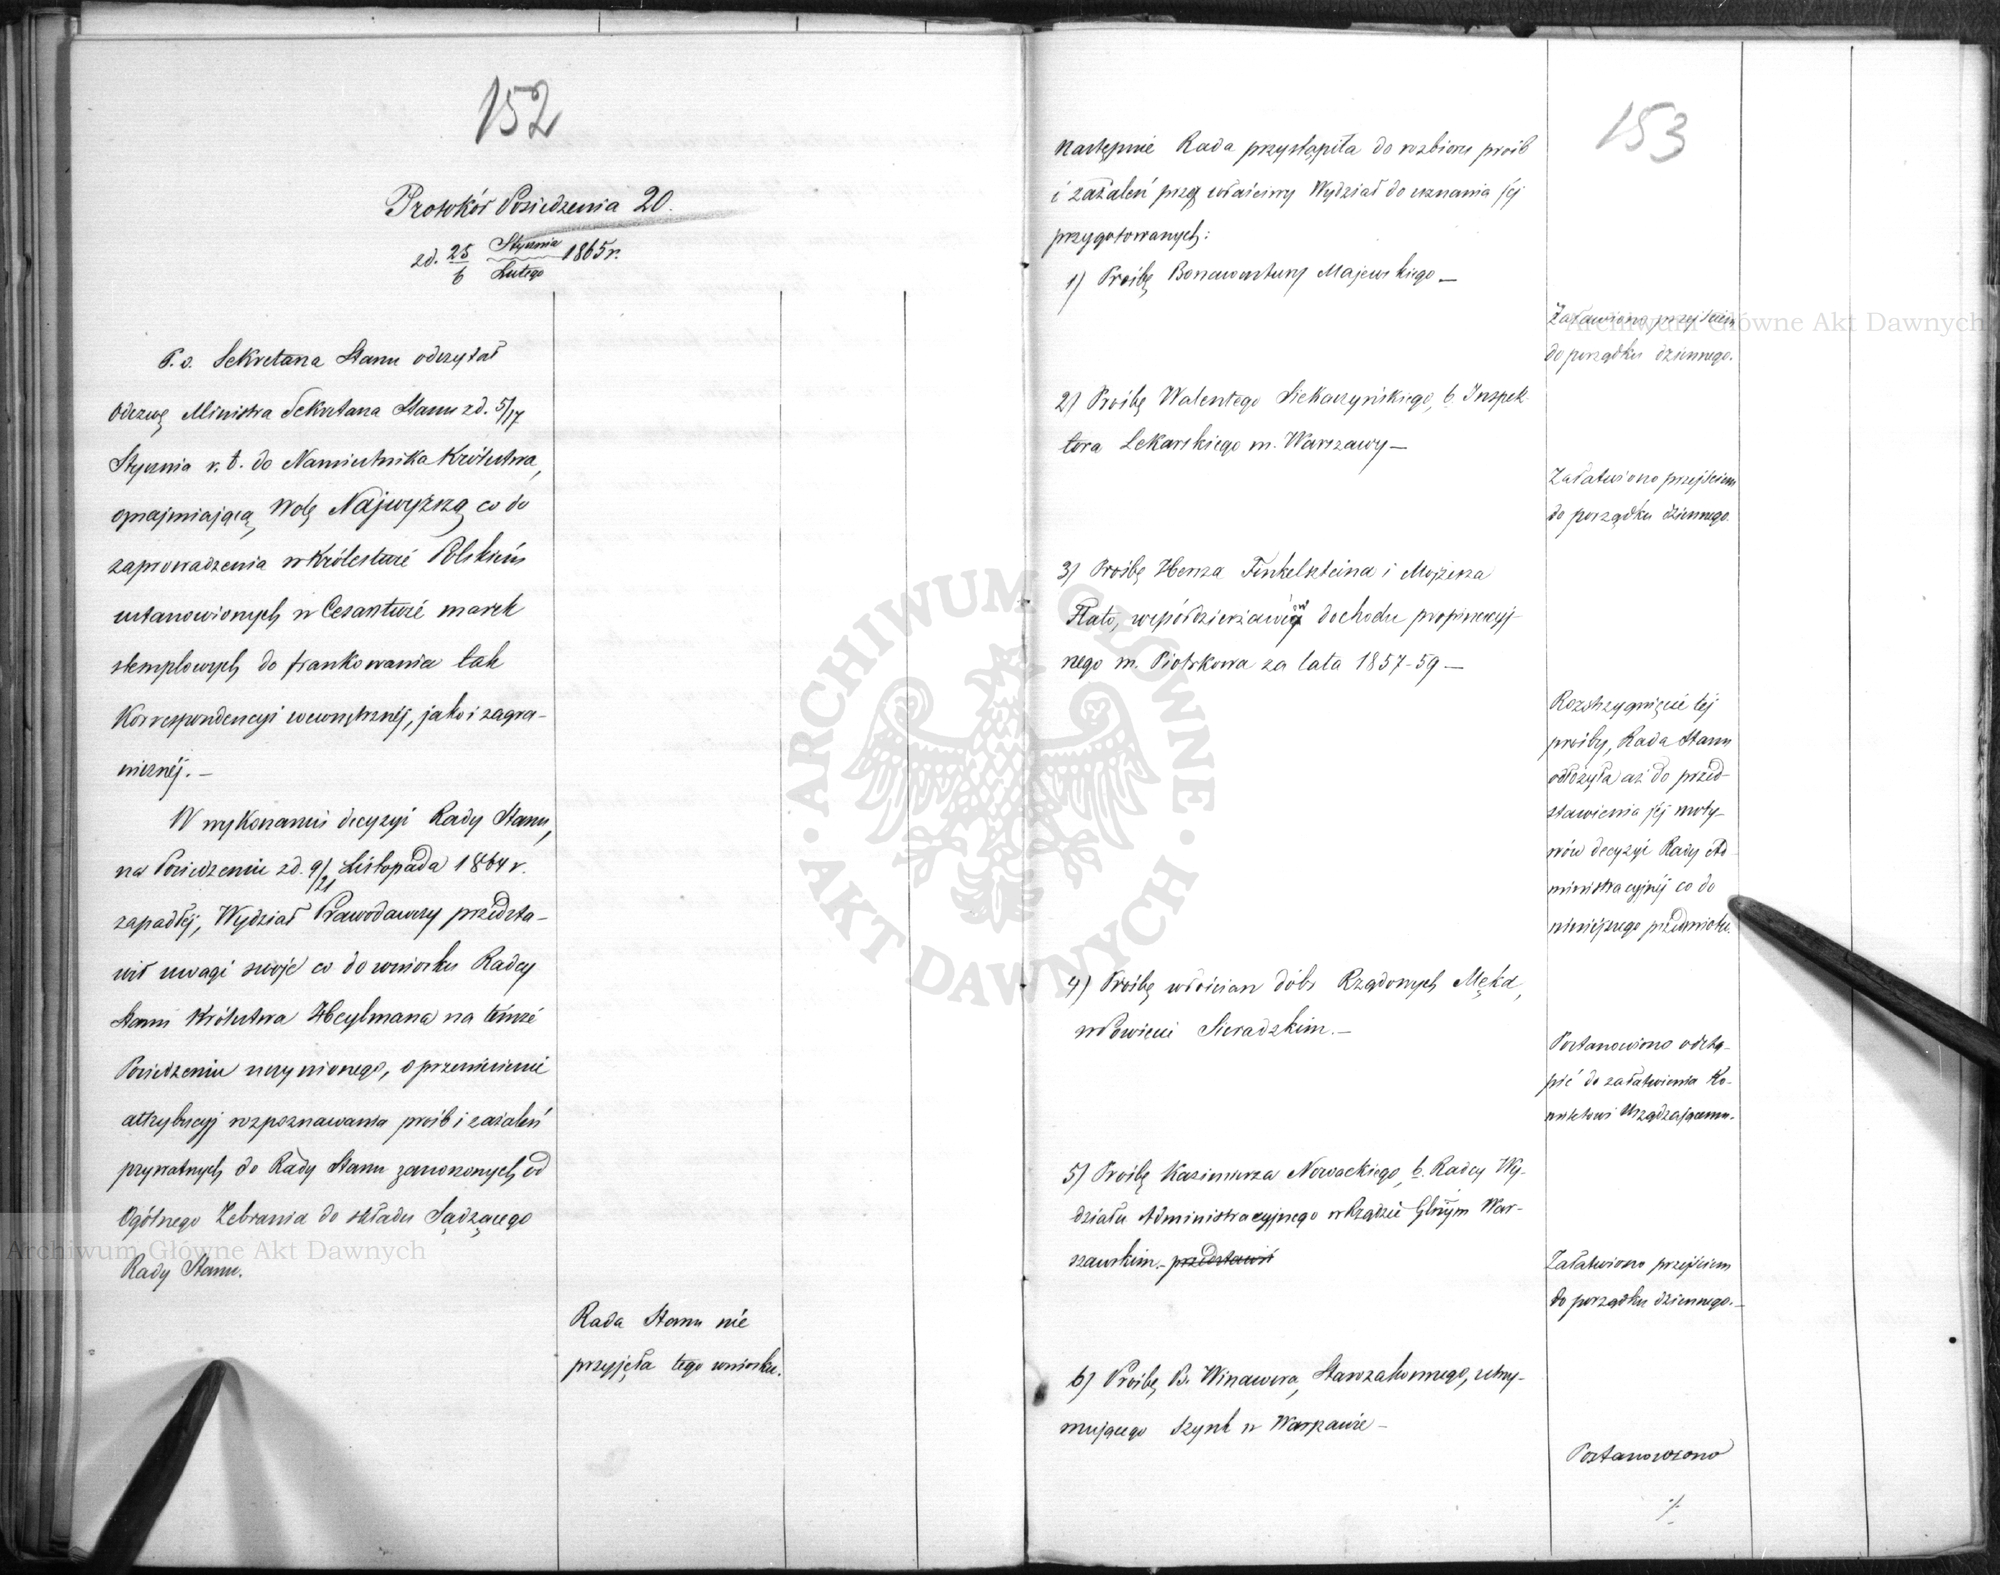 152
Protokół Posiedzenia 20.
zd. 25/6 Stycznia/Lutego 1865 r.
P. o. Sekretarza Stanu odczytał
Odezwę Ministra Sekretarza Stanu zd. 5/17
Stycznia r. b. do Namiestnika Królestwa,
oznajmiającą Wolę Najwyższą co do
zaprowadzenia w Królestwie Polskiém
ustanowionych w Cesarstwie marek
stemplowych do frankowania tak
Korrespondencyi wewnętrznéj, jako i zagra-
nicznéj. —
W wykonaniu decyzyi Rady Stanu,
na Posiedzeniu zd. 9/21 Listopada 1864 r.
zapadłéj, Wydział Prawodawczy przedsta-
wił uwagi swoje co do wniosku Radcy
Stanu Królestwa Heylmana na témże
Posiedzeniu uczynionego, o przeniesienie
attrybucyj rozpoznawania próśb i zażaleń
prywatnych do Rady Stanu zanoszonych, od
Ogólnego Zebrania do składu Sądzącego
Rady Stanu.
Rada Stanu nie
przyjęła tego wniosku.
153
Następnie Rada przystąpiła do rozbioru próśb
i zażaleń przez właściwy Wydział do uznania jéj
przygotowanych:
1) Prośbę Bonawentury Majewskiego —
Załatwiono przejściem
do porządku dziennego.
2) Prośbę Walentego Siekaczyńskiego, b. Inspek-
tora Lekarskiego m. Warszawy —
Załatwiono przejściem
do porządku dziennego.
3) Prośbę Hersza Finkelszteina i Mojżesza
Flato, współdzierżawców dochodu propinacyj-
nego m. Piotrkowa za lata 1857-59 —
Rozstrzygnięcie téj
prośby, Rada Stanu
odłożyła aż do przed-
stawienia jéj moty-
wów decyzyi Rady Ad-
ministracyjnéj co do
niniejszego przedmiotu.
4) Prośbę włościan dóbr Rządowych Męka,
w Powiecie Sieradzkim. —
Postanowiono odstą-
pić do załatwienia Ko-
mitetowi Urządzającemu.
5) Prośbę Kazimierza Nowackiego, b. Radcy Wy-
działu Administracyjnego w Rządzie Glnym War-
szawskim. — przedstawił
Załatwiono przejściem
do porządku dziennego. —
6) Prośbę B. Winawera, Starozakonnego, utrzy-
mującego Szynk w Warszawie —
Postanowiono
·/·
Archiwum Główne Akt Dawnych
Archiwum Główne Akt Dawnych
ARCHIWUM GŁÓWNE · AKT DAWNYCH ·